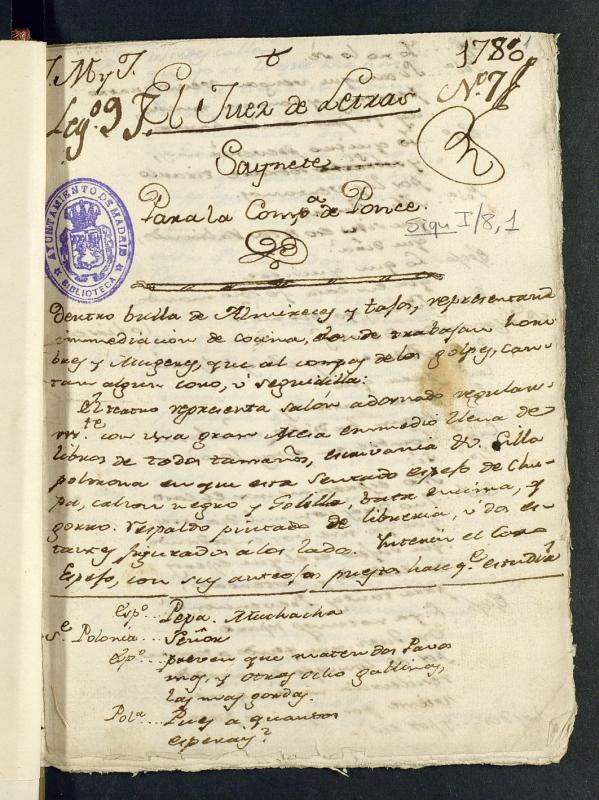 J. M y J.
1780
Leg.º 9 J.
Nº 7
El Juez de Letras
Saynete
Para la Comp.ª de Ponce.
Sign I/8,1
AYUNTAMIENTO DE MADRID
BIBLIOTECA
Dentro bulla de Almireces y tajos, representand
inmediacion de cocina, donde trabajan hom
bres y Mugeres, que al compas de los golpes, can-
tan algun coro, ù seguidilla:
El teatro representa salón adornado regularm-
te con una gran Mesa enmedio llena de
libros de todos tamaños, escrivania &. Silla
poltrona en que està sentado espejo de Chu-
pa, calzon negro y Golilla, bata encima, y
gorro. respaldo pintado de libreria, ù dos es-
tantes figurados à los lados. Interin el Coro
Espejo, con sus anteojos puestos hace q.e estudia
Esp.º... Pepa. Muchacha
S.e Polonia... Señor
Esp.º... preven que maten dos Pavos
mas, y otras ocho gallinas,
las mas gordas.
Pol.a... Pues a quantos
esperais?